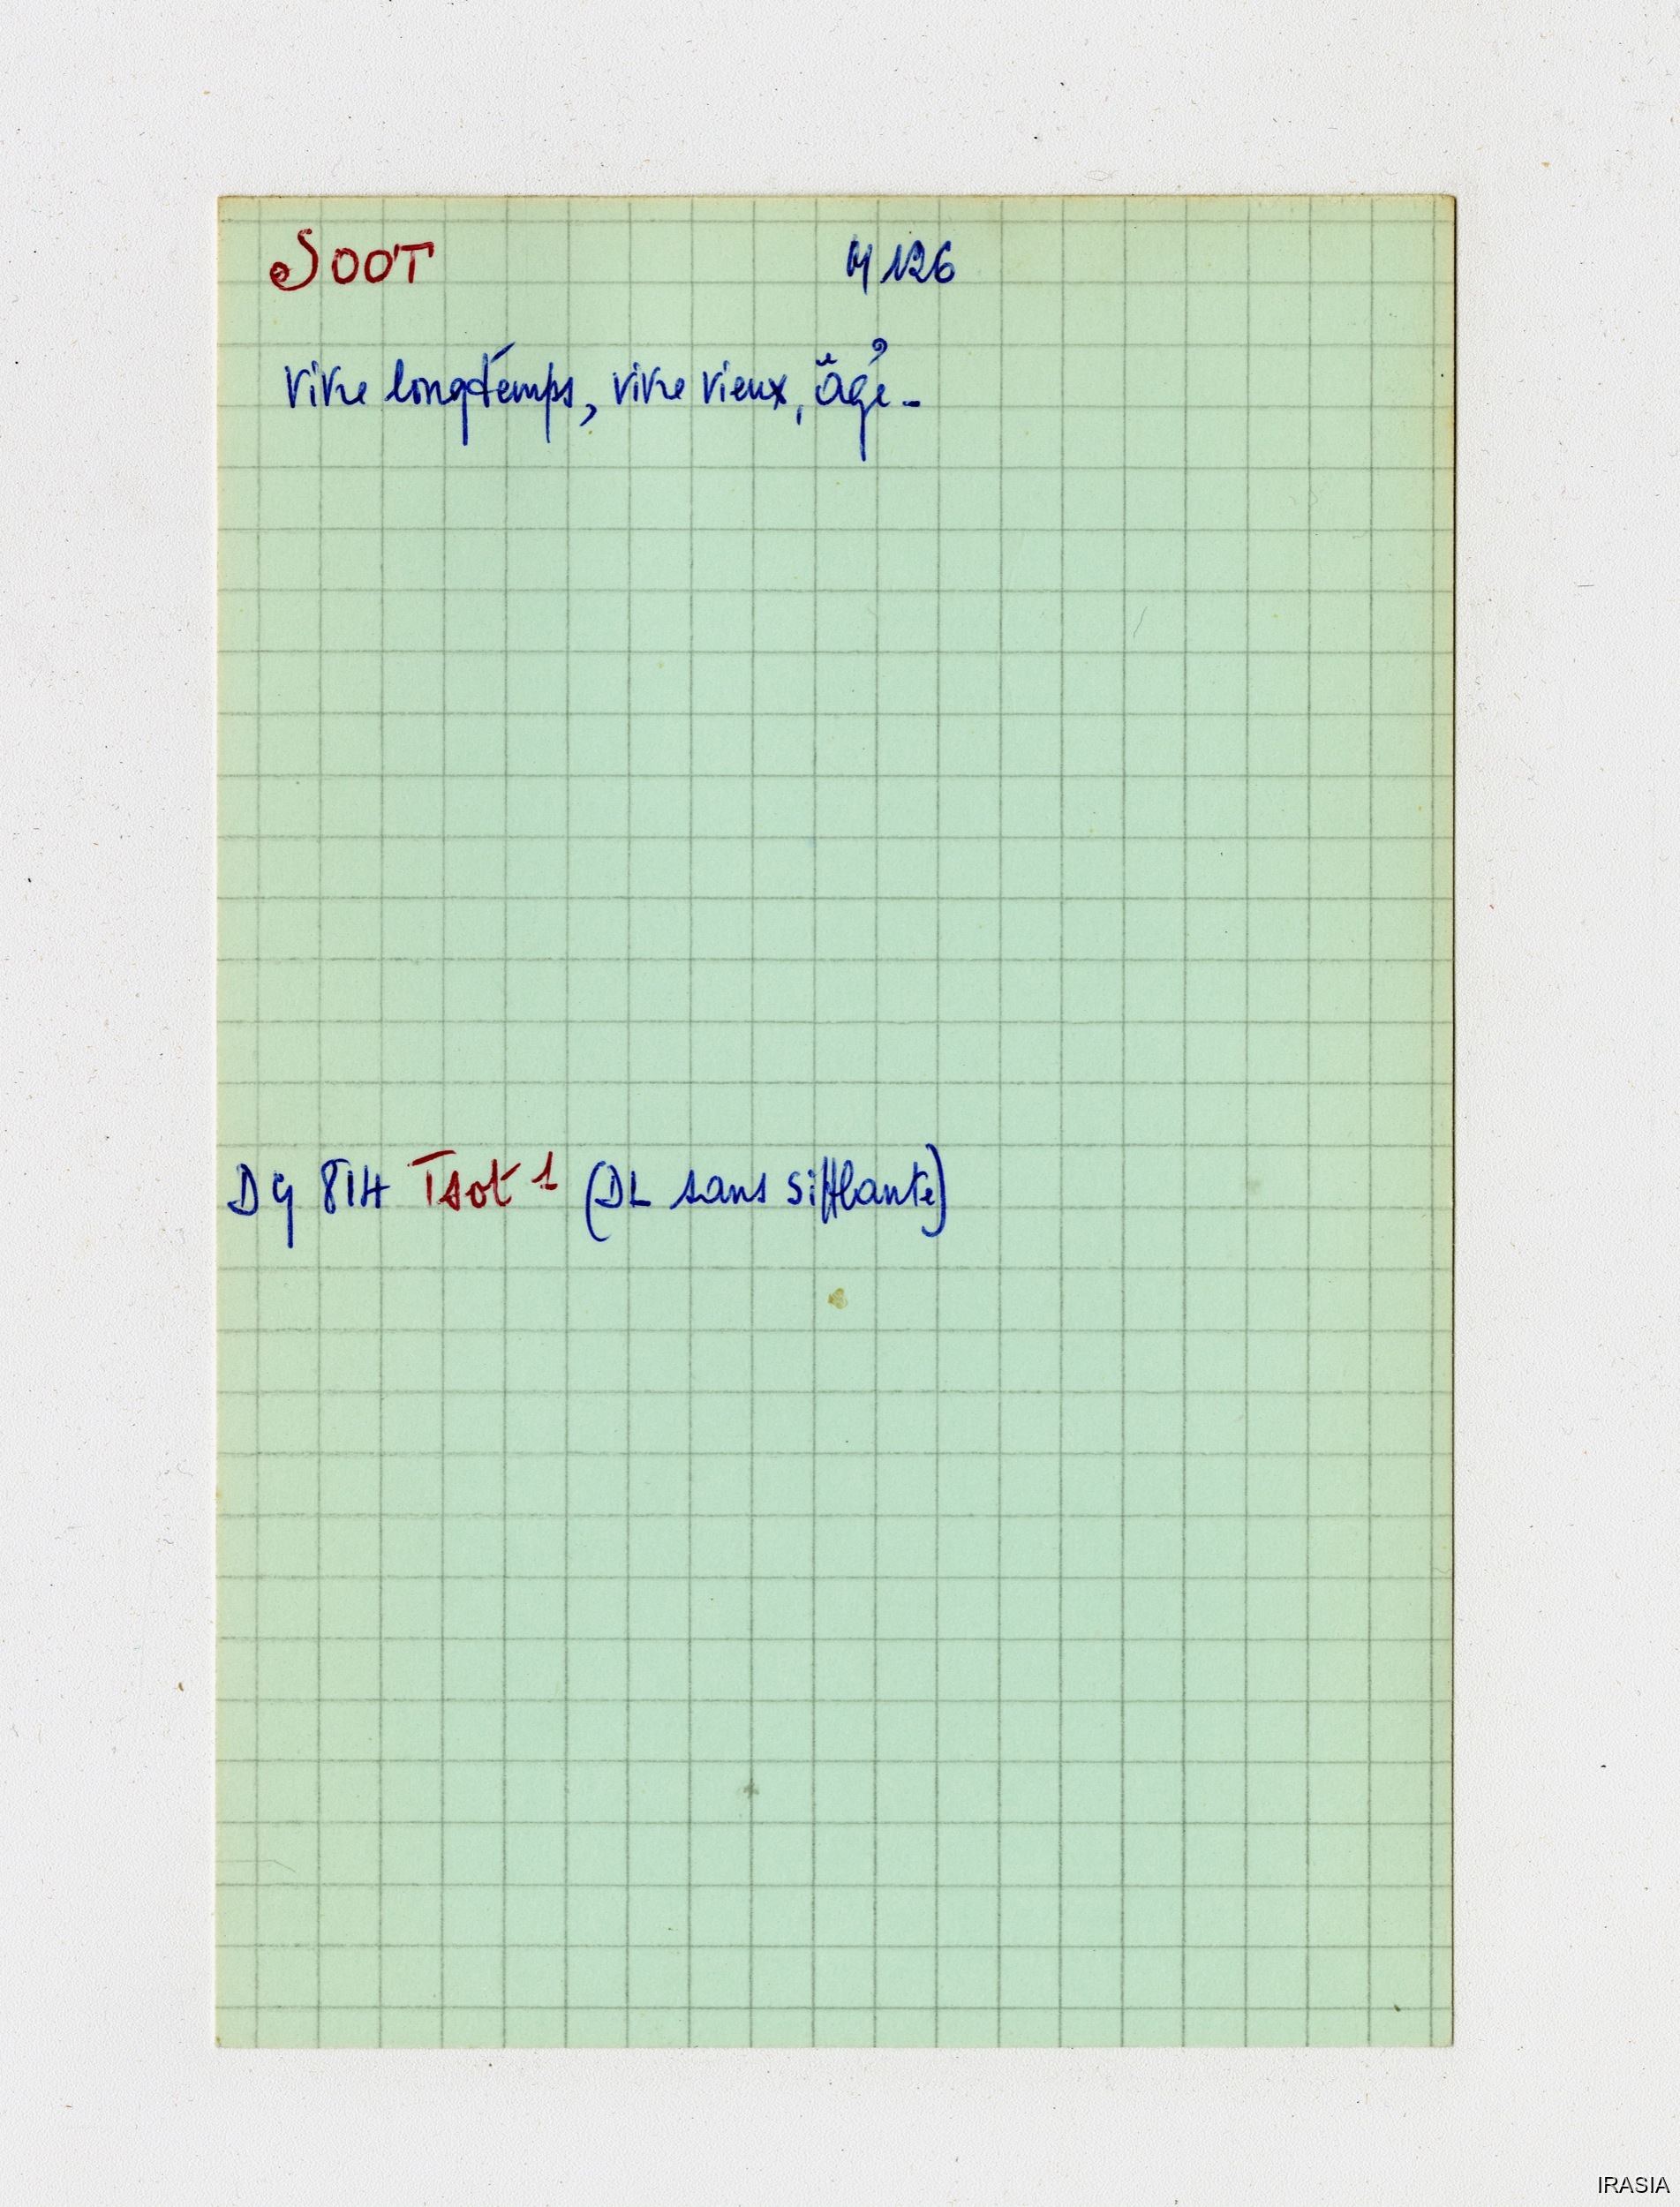 SOOT M 126
vivre longtemps, vivre vieux, âgé.
DG 814 Tsot 1 (DL sans sifflante)
IRASIA